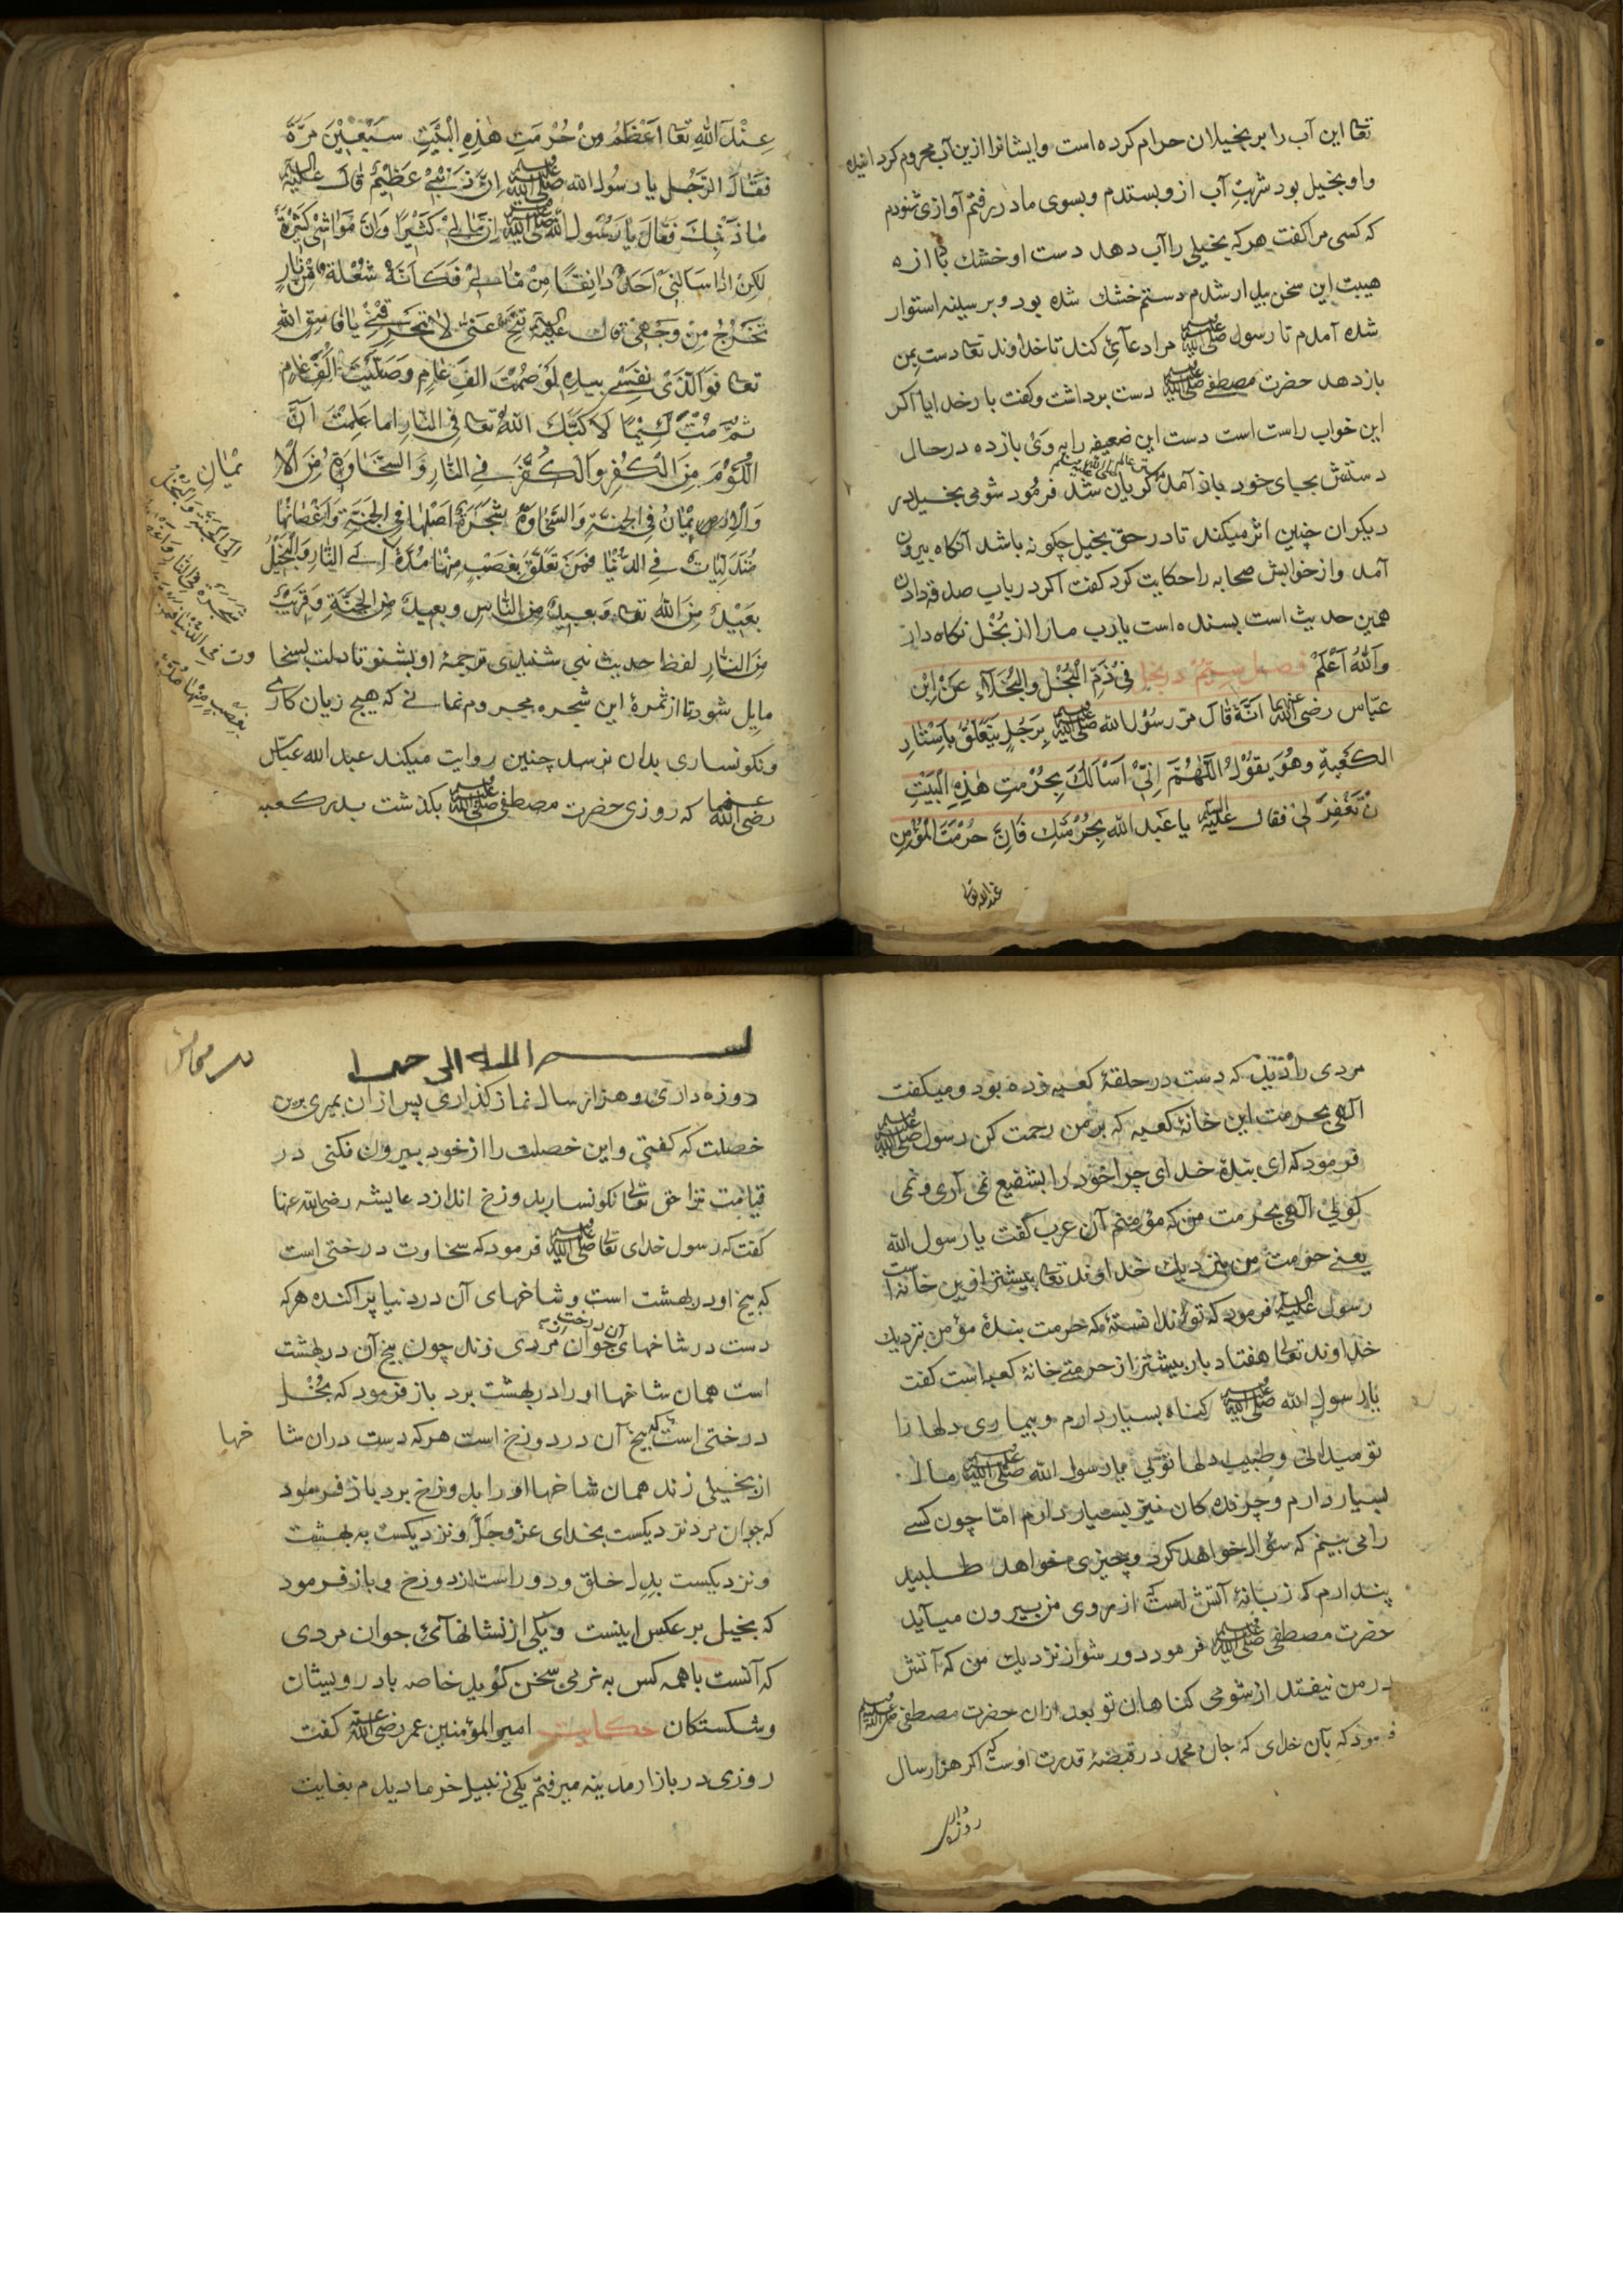 تعا این آب را بر بخیلان حرام کرده است وایشانرا ازین آب محروم کردانیده
واو بخیل بود شربتِ آب ازو بستدم وبسوی مادر برفتم آوازی شنودم
که کسی مرا کفت هر که بخیلی را آب دهد دست او خشک باد از
هیبت این سخن بیدار شدم دستم خشک شده بود وبر سینه استوار
شده آمدم تا رسول صلی الله علیه وسلم مرا دعائی کند تا خداوند تعا دست بمن
باز دهد حضرت مصطفی صلی الله علیه وسلم دست برداشت وکفت بار خدایا اکر
این خواب راست است دست این ضعیفه را به وی باز ده در حال
دستش بجای خود باز آمد کریان شد فرمُود شومی بخیل در
دیکران چنین اثر میکند تا در حق بخیل چکونه باشد آنکاه بیرون
آمد واز خوابش صحابه را حکایت کرد کفت اکر در باب صدقه دادن
همین حدیث است بسنده است یارب ما را از بُخْل نکاه دار
واللهُ اَعْلَمْ فصل سیّم در بخیل فِیْ ذَمِّ الْبُخْلِ والْبُخَلَآءِ عَنْ اِبْن
عبّاس رضی الله عنهما اَنَّهُ قَالَ مَرّ رسُوْلُ الله صلی الله علیه وسلم بِرَجُلٍ یَتَعَلَّقُ بِاَسْتَارِ
الکَعْبَةِ وَهُوَ یَقُوْلُ اَللّٰهُمَّ اِنِّیْ اَسْاَلُکَ بِحُرْمَتِ هٰذِهِ الْبَیْتِ
نْ تَغْفِرَ لِیْ فقالـ علیه السلام یا عَبد الله بِحُرْمَتِکِ فَاِنَّ حُرْمَتَ الْمُؤمِنِ
عندالله تعا
عِنْدَ اللهِ تعا اَعْظَمُ مِنْ حُرْمَتِ هٰذِهِ الْبَیْتِ سَبْعِیْنَ مَرَّةً
فَقَالَ الرَّجُل یا رسُول الله صلی الله علیه وسلم اِنَّ ذَنْبِیْ عَظِیْمٌ قالـ علیه السلام
مَا ذَنْبِکَ فَقَالَ یَا رَسُوْلـ الله صلی الله علیه وسلم اِنَّ مَالِیْ کَثِیْرًا وَاِنَّ مَوَاشِیْ کَثِیْرَةٌ
لکِنْ اِذَا سَاَلَنِیْ اَحَدٌ دَانِقًا مِنْ مَالِیْ فَکَاَنَّهُ شُعْلَةٌ مِنْ نَارٍ
تَخْرُجُ مِنْ وَجْهِیْ قالـ علیه السلام تَنَحَّ عَنِّیْ لَا تَحْرِقْنِیْ یَا فَاسِقَ اللهِ
تعا فَوَالَّذِیْ نَفْسِیْ بِیَدِهِ لَوْ صُمْتَ اَلْفَ عَامٍ وَصَلَّیْتَ اَلْفَ عَامٍ
ثُمَّ مُتَّ لَئِیْمًا لَاَکَبَّکَ اللهُ تعا فی النَّارِ اما عَلِمْتَ اَنَّ
اللُّؤْمَ مِنَ الْکُفْرِ وَالْکُفْرَ فِی النَّارِ وَ السَّخَاوَة مِنَ الْاِ
یْمَانِ
وَالاِیْمَانُ فِی الجنَّةِ وَالسَّخَاوَةُ شَجَرَةٌ اَصْلُهَا فِی الْجَنَّةِ وَاَغْصَانُهَا
مُتَدَلِّیَاتٌ فِی الدُّنْیَا فَمَنْ تَعَلَّقَ بِغُصْنٍ مِنْهَا مُدَّهُ اِلَی النَّارِ وَالْبَخِیْلُ
بَعِیْدٌ مِنَ اللهِ تعا وَبَعِیدٌ مِنَ النَّاسِ وبعید مِنَ الجَنَّةِ وَقَرِیْبٌ
مِنَ النَّارِ لفظ حدیث نبی شنیدی ترجمهٔ او بشنو تا دلت بسخا
وت
مایل شود تا از ثمرهٔ این شجره محروم نمانی که هیچ زیان کاری
ونکونساری بدان نرسد چنین روایت میکند عبدالله عبّاس
رضی الله عنهما که روزی حضرت مصطفی صلی الله علیه وسلم بکذشت بدر کعبه
اِلَی الجَنَّةِ وَالبُخْلُ
شجَرَةٌ فِی النَّارِ وَاغْصَانُهَا
فِی الدُّنْیَا فَمَنْ
بِغُصْنٍ مِنْهَا مُدَّهُ
مردی را دید که دست در حلقهٔ کعبه زده بود ومیکفت
الهی بحرمت این خانهٔ کعبه که بر من رحمت کن رسول صلی الله علیه وسلم
فرمود که ای بندهٔ خدای چرا خود را بشفیع نمی آری ونمی
کوئی الهی بحُرمت من که مؤمنم آن عرب کفت یا رسول الله
یعنی حرمت من بنزدیک خداوند تعا بیشتر ازین خانه است
رسول علیه السلام فرمود که تو ندانستهٔ که حرمت بندهٔ مؤمن نزدیک
خداوند تعا هفتاد بار بیشتر از حرمتِ خانهٔ کعبه است کفت
یا رسول الله صلی الله علیه وسلم کناه بسیار دارم وبیماری دلها را
تو میدانی وطبیب دلها توئی یا رسول الله صلی الله علیه وسلم مالـ
بسیار دارم وچرنده کان نیز بسیار دارم امّا چون کسی
را می بینم که سؤال خواهد کرد وچیزی خواهد طلبید
پندارم که زبانهٔ آتش است که از روی من بیرون میآید
حضرت مصطفی صلی الله علیه وسلم فرمود دور شو از نزدیک من که آتش
در من نیفتد از شومی کناهان تو بعد ازان حضرت مصطفی صلی الله علیه وسلم
فرمود که بآن خدای که جان محمد در قبضهٔ قدرت اوست که اکر هزار سال
روزه داری
بسم الله الرحمن
روزه داری وهزار سال نماز کذاری پس ازان بمیری برین
خصلت که کفتی واین خصلت را از خود بیرون نکنی در
قیامت ترا حق تعالی نکونسار بدوزخ اندازد عایشه رضی الله عنها
کفت که رسول خدای تعا صلی الله علیه وسلم فرمود که سخاوت درختی است
که بیخ او در بهشت است وشاخهای آن در دنیا پراکنده هر که
دست در شاخهای آن درخت جوان مردی زند چون بیخ آن در بهشت
است همان شاخها او را در بهشت برد باز فرمود که بُخْل
درختی است که بیخ آن در دوزخ است هر که دست دران شا
خها
از بخیلی زند همان شاخها او را بدوزخ برد باز فرمود
که جوان مرد نزدیکست بخدای عزّ وجَلّ ونزدیکست به بهشت
ونزدیکست بدل خلق ودور است از دوزخ وباز فرمود
که بخیل بر عکس اینست ویکی از نشانهائ جوان مردی
که آنست با همه کس به نرمی سخن کوید خاصه با درویشان
وشکستکان حکایت امیرالمؤمنین عمر رضی الله عنه کفت
روزی در بازار مدینه میرفتم یکی زنبیل خرما دیدم بغایت